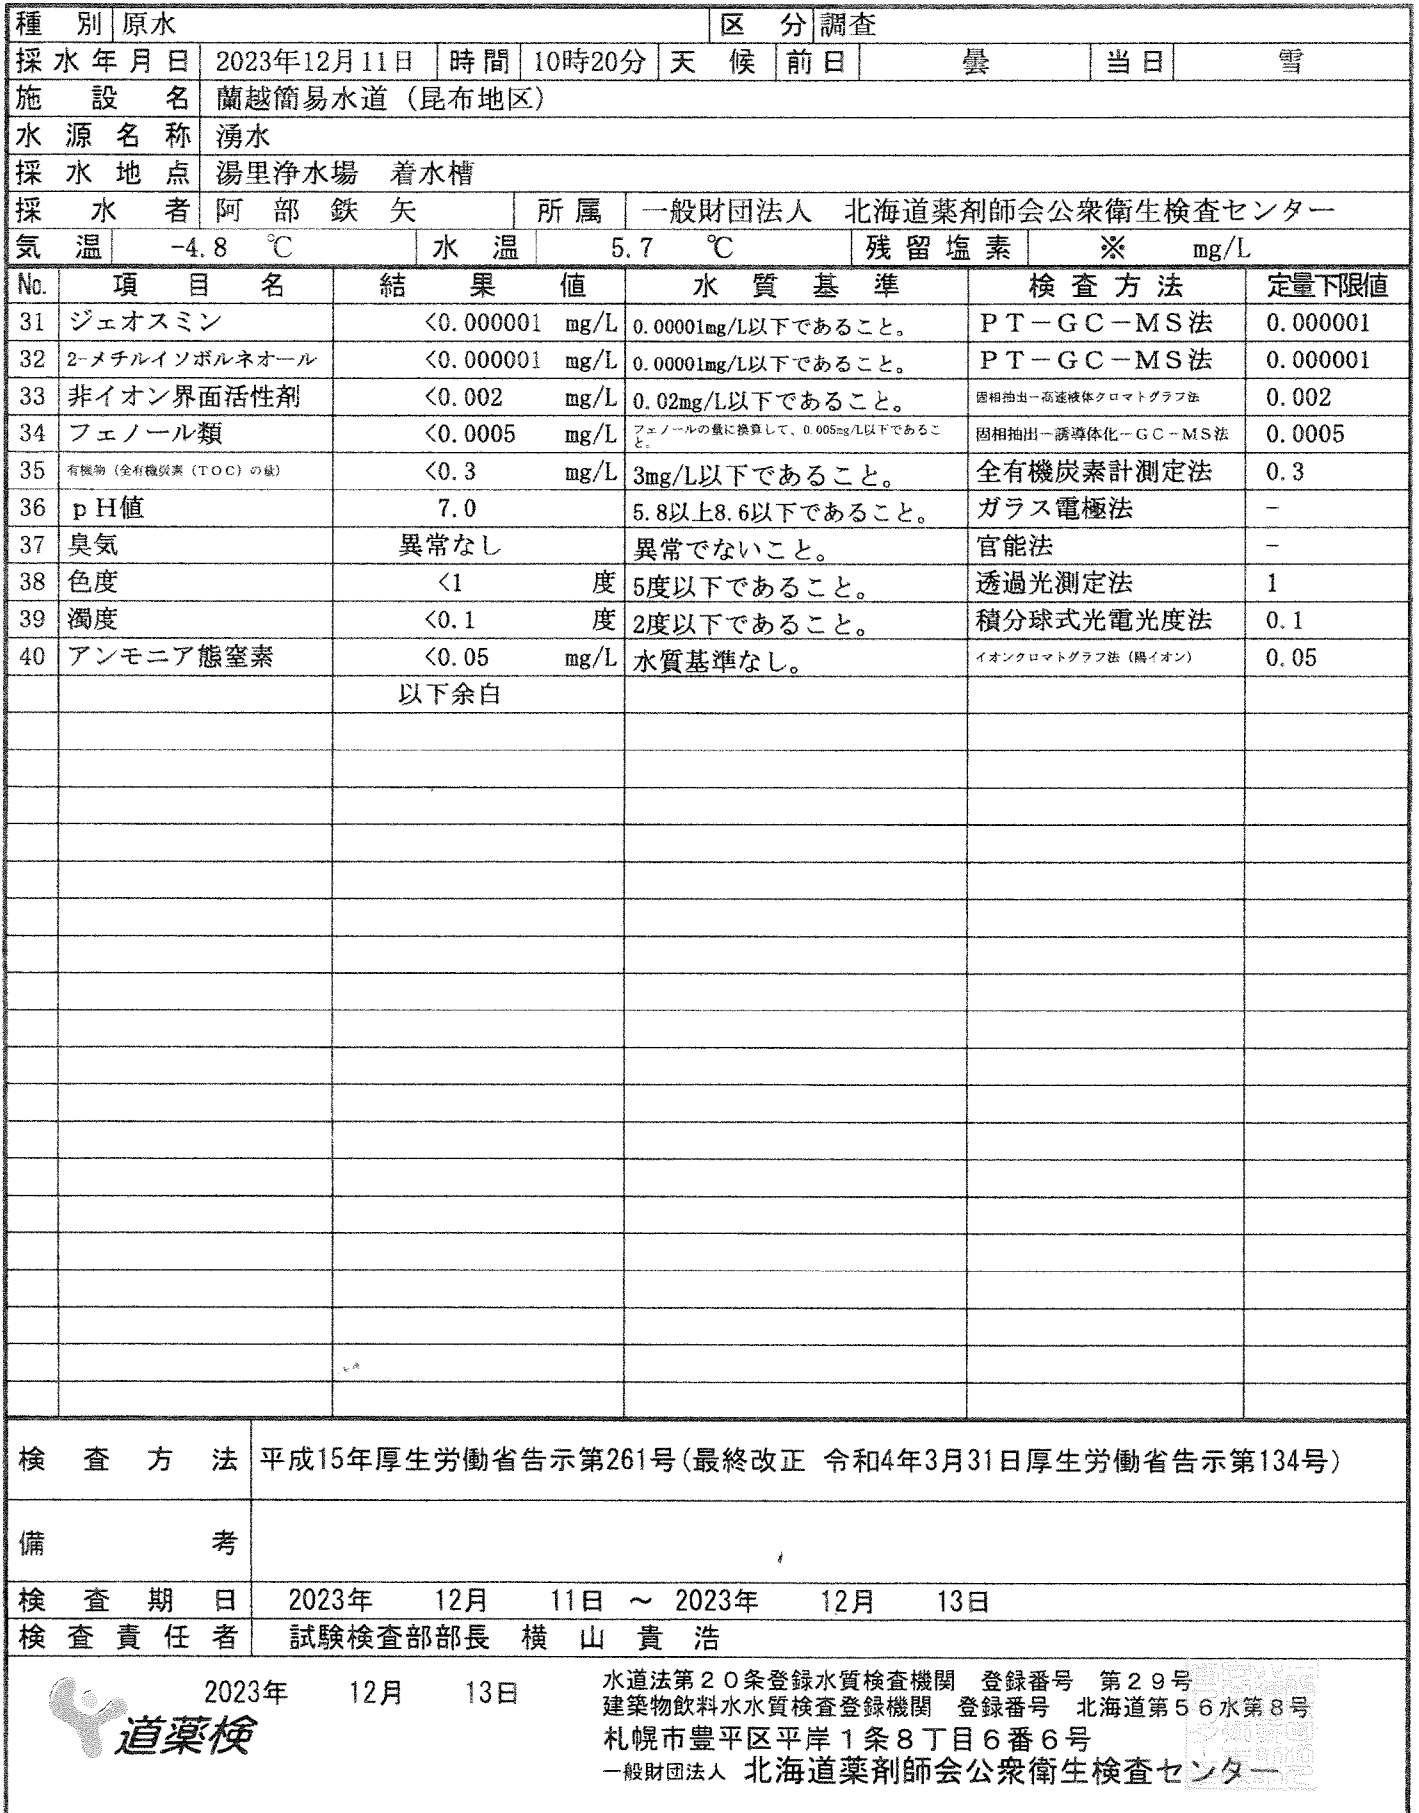 種別 原水 区分 調査
採水年月日 2023年12月11日 時間 10時20分 天候 前日 曇 当日 雪
施設名 蘭越簡易水道（昆布地区）
水源名称 湧水
採水地点 湯里浄水場　着水槽
採水者 阿部鉄矢 所属 一般財団法人　北海道薬剤師会公衆衛生検査センター
気温 -4.8 ℃ 水温 5.7 ℃ 残留塩素 ※ mg/L
No. 項目名 結果値 水質基準 検査方法 定量下限値
31 ジェオスミン <0.000001 mg/L 0.00001mg/L以下であること。 ＰＴ－ＧＣ－ＭＳ法 0.000001
32 2-メチルイソボルネオール <0.000001 mg/L 0.00001mg/L以下であること。 ＰＴ－ＧＣ－ＭＳ法 0.000001
33 非イオン界面活性剤 <0.002 mg/L 0.02mg/L以下であること。 固相抽出－高速液体クロマトグラフ法 0.002
34 フェノール類 <0.0005 mg/L フェノールの量に換算して、0.005mg/L以下であること。 固相抽出－誘導体化－ＧＣ－ＭＳ法 0.0005
35 有機物（全有機炭素（ＴＯＣ）の量） <0.3 mg/L 3mg/L以下であること。 全有機炭素計測定法 0.3
36 ｐＨ値 7.0 5.8以上8.6以下であること。 ガラス電極法 －
37 臭気 異常なし 異常でないこと。 官能法 －
38 色度 <1 度 5度以下であること。 透過光測定法 1
39 濁度 <0.1 度 2度以下であること。 積分球式光電光度法 0.1
40 アンモニア態窒素 <0.05 mg/L 水質基準なし。 イオンクロマトグラフ法（陽イオン） 0.05
以下余白
検査方法 平成15年厚生労働省告示第261号(最終改正 令和4年3月31日厚生労働省告示第134号)
備考
検査期日 2023年 12月 11日 ～ 2023年 12月 13日
検査責任者 試験検査部部長 横山貴浩
2023年 12月 13日
道薬検
水道法第２０条登録水質検査機関　登録番号　第２９号
建築物飲料水水質検査登録機関　登録番号　北海道第５６水第８号
札幌市豊平区平岸１条８丁目６番６号
一般財団法人 北海道薬剤師会公衆衛生検査センター